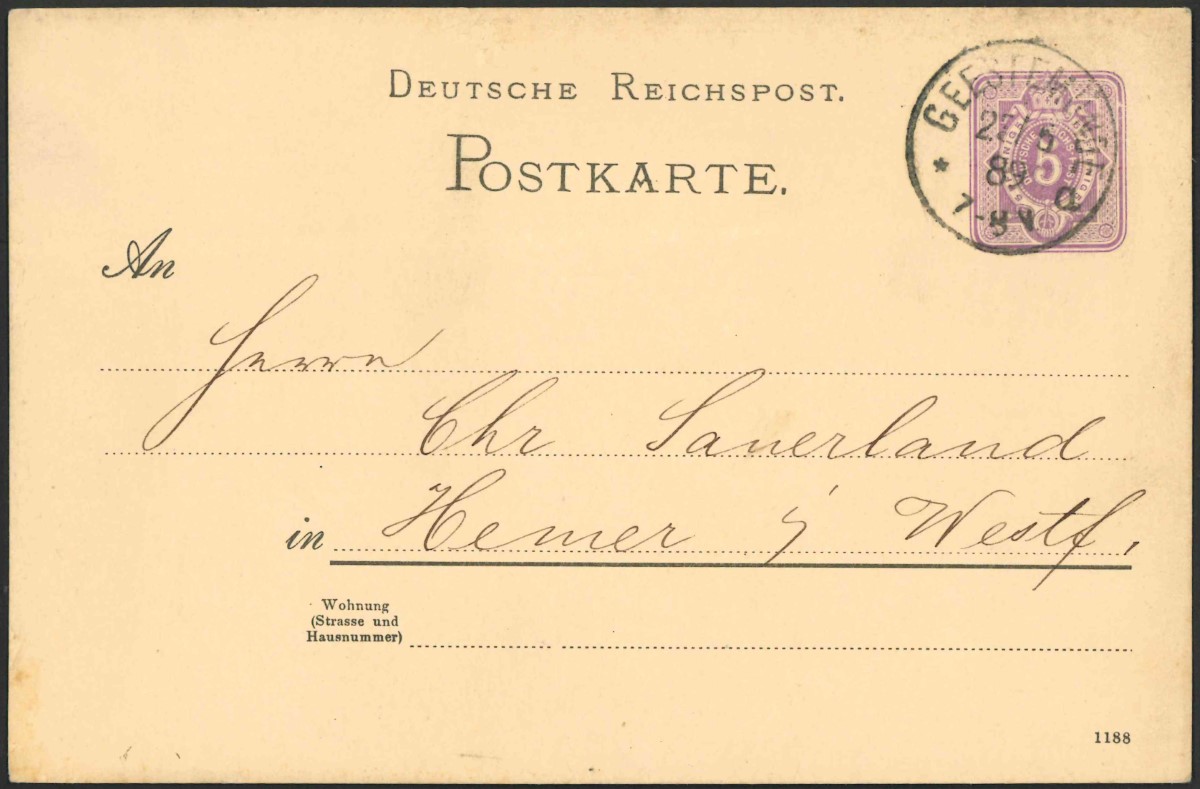 DEUTSCHE REICHSPOST.
POSTKARTE.
5
89
7-8 V
An
Herrn
Chr Sauerland
in Hemer i/ Westf.
Wohnung
(Strasse und
Hausnummer)
1188